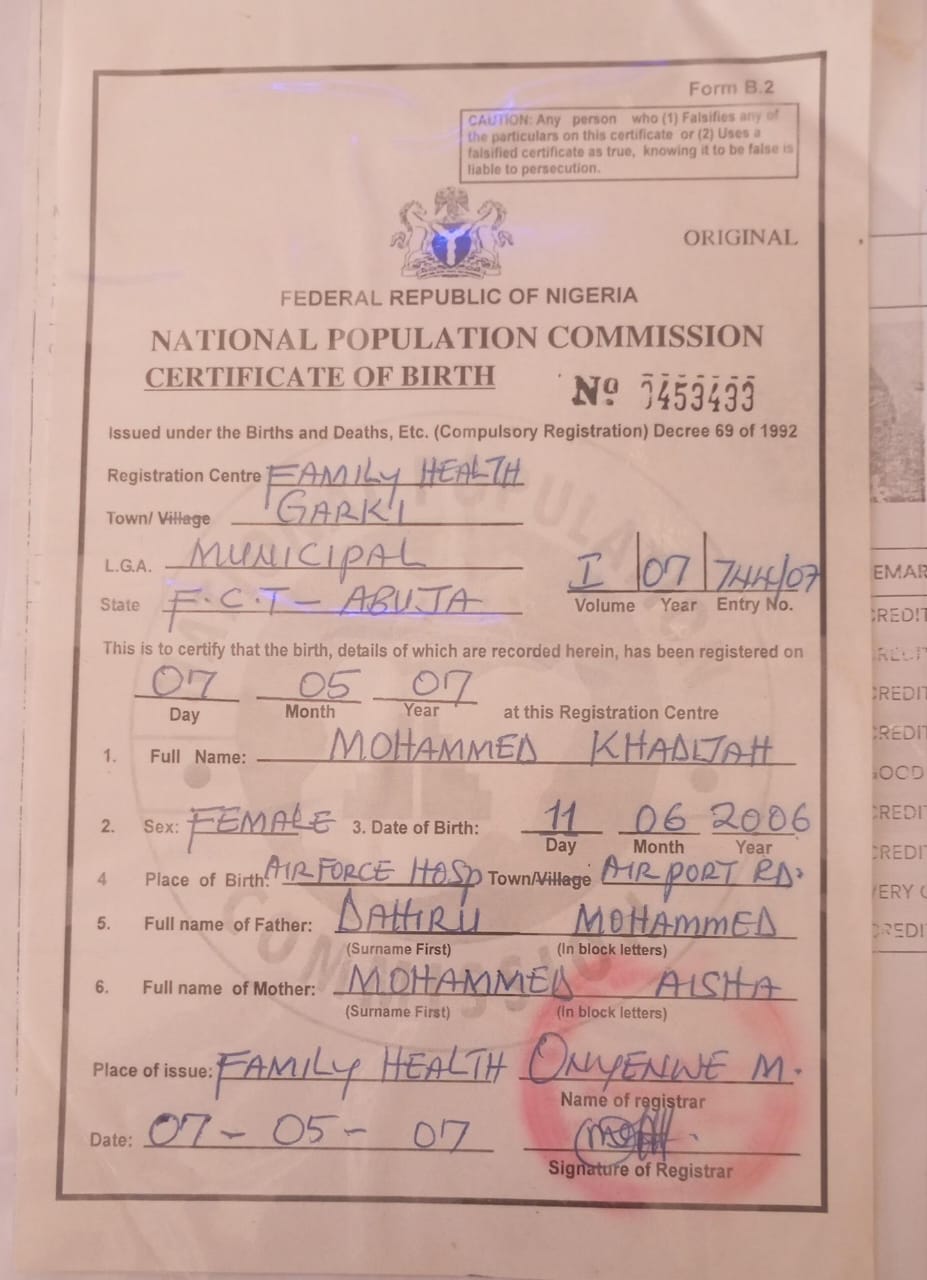 Form B.2
CAUTION: Any person who (1) Falsifies any of
the particulars on this certificate or (2) Uses a
falsified certificate as true, knowing it to be false is
liable to persecution.
ORIGINAL
FEDERAL REPUBLIC OF NIGERIA
NATIONAL POPULATION COMMISSION
CERTIFICATE OF BIRTH Nº 0453433
Issued under the Births and Deaths, Etc. (Compulsory Registration) Decree 69 of 1992
Registration Centre FAMILY HEALTH
Town/ Village GARKI
L.G.A. MUNICIPAL I 07 744/07
State F.C.T - ABUJA Volume Year Entry No.
This is to certify that the birth, details of which are recorded herein, has been registered on
07 05 07
Day Month Year at this Registration Centre
1. Full Name: MOHAMMED KHADIJAH
2. Sex: FEMALE 3. Date of Birth: 11 06 2006
Day Month Year
4 Place of Birth: AIRFORCE HOSP Town/Village AIRPORT RD.
5. Full name of Father: DAHIRU MOHAMMED
(Surname First) (In block letters)
6. Full name of Mother: MOHAMMED AISHA
(Surname First) (In block letters)
Place of issue: FAMILY HEALTH ONYENWE M.
Name of registrar
Date: 07 - 05 - 07
Signature of Registrar